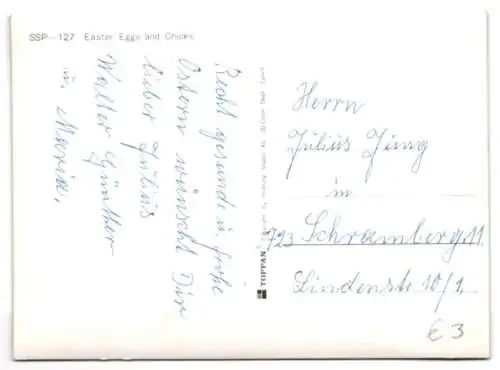 SSP-127 Easter Eggs and Chicks
Recht gesunde u. frohe
Ostern wünscht Dir
lieber Julius
Walter Günther
u. Maria.
TOPPAN
Herrn
Julius Jung
in
723 Schramberg 11
Lindenstr 10/1
€ 3